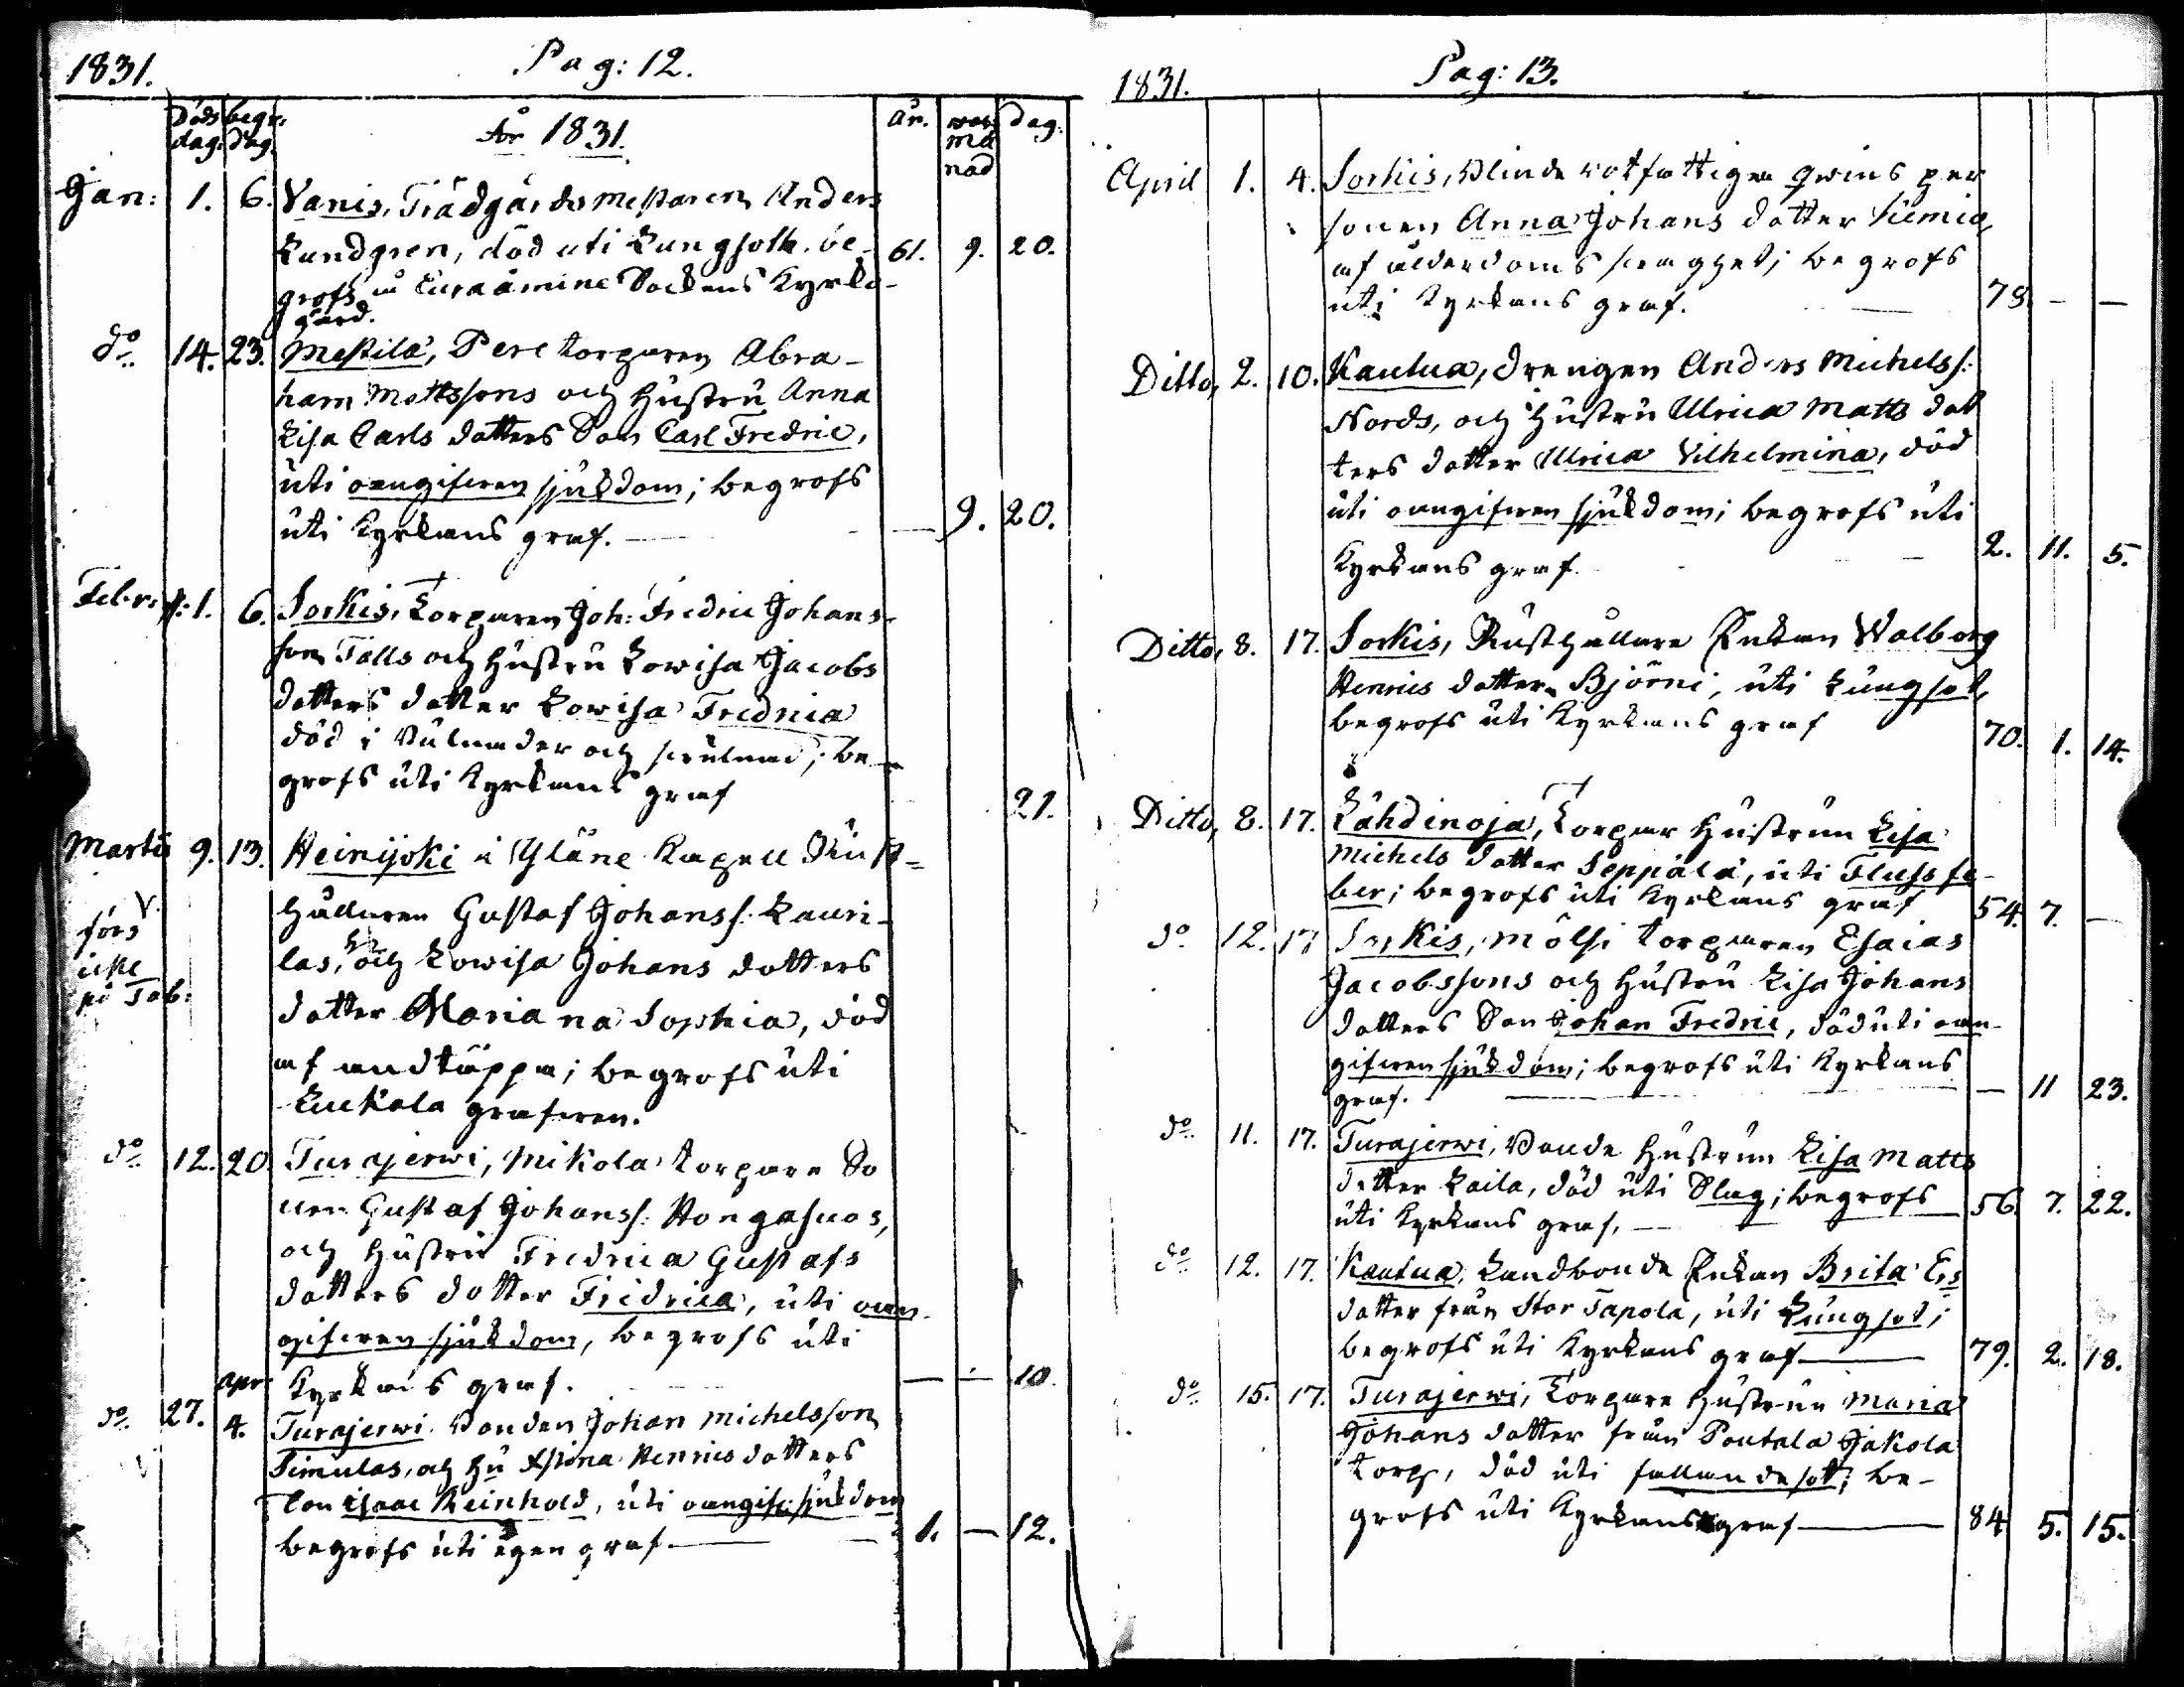 1831. Pag: 12.
Döds dag. begr: dag. År 1831. år. må nad dag.
Jan: 1. 6. Vanis, Trädgårds mestaren Anders
Lundgren, död uti Lungsoth. be- 61. 9. 20.
grofs å Euraåminne Sockens Kyrko-
gård.
do 14. 23. Mestilä, Pere torparen Abra-
ham Mattssons och Hustru Anna
Lisa Carls dotters Son Carl Fredric,
uti oangifwen sjukdom; begrofs
uti Kyrkans graf. — — 9. 20.
Febr: 1. 6. Sorkis, Torparen Joh: Fredric Johans-
son Tålls och Hustru Lowisa Jacobs
dotters dotter Lowisa Fredrica
död i Bulnader och swulnad; be-
grofs uti Kyrkans graf 21.
Martii 9. 13. Heinijoki i Yläne Kapell Rust-
hållaren Gustaf Johanss: Lauri-
las, och Lowisa Johans dotters
förs icke på Tab:
dotter Maria na Sophia, död
af andtäppa; begrofs uti
Luckola grafwen.
do 12. 20. Turajerwi, Mikola torpare So
nen Gustaf Johanss: Hongasuos,
och Hustru Fredrica Gustafs
dotters dotter Fredrica, uti oan-
gifwen sjukdom, begrofs uti
Kyrkans graf. — — 10.
do 27. apr 4. Turajerwi Bonden Johan Michelsson
Simulas, och Hu Xstina Henrics dotters
Son Isaac Reinhold, uti oangif: sjukdom
begrofs uti egen graf — 1. — 12.
1831. Pag: 13.
April 1. 4. Sorkis, Blinde rotfattigen qwins per
sonen Anna Johans dotter Kemia,
af ålderdoms swaghet; begrofs
uti Kyrkans graf. 78 — —
Ditto, 2. 10. Kautua, Drengen Anders Michelss:
Nords, och Hustru Ulrica Matts dot
ters dotter Ulrica Vilhelmina, död
uti oangifwen sjukdom; begrofs uti
Kyrkans graf. 2. 11. 5.
Ditto, 8. 17. Sorkis, Rusthållare Enkan Walborg
Henrics dotter Björni, uti Lungsot,
begrofs uti Kyrkans graf 70. 1. 14.
Ditto, 8. 17. Lähdinoja, Torpar Hustrun Lisa
Michels dotter Seppälä, uti Flussfe-
ber; begrofs uti Kyrkans graf 54. 7. —
do 12. 17 Sorkis, Mölsi torparen Esaias
Jacobssons och Hustru Lisa Johans
dotters Son Johan Fredric, död uti oan-
gifwen sjukdom; begrofs uti Kyrkans
graf. — 11 23.
do 11. 17. Turajerwi, Bonde Hustrun Lisa Matts
dotter Laila, död uti Slag; begrofs 56. 7. 22.
uti Kyrkans graf. —
do 12. 17. Kautua, Landbonde Enkan Brita Ers
dotter från Stor Tapola, uti Lungsot;
begrofs uti Kyrkans graf — 79. 2. 18.
do 15. 17. Turajerwi, Torpare Hustrun Maria
Johans dotter från Pontala Jakola
torp, död uti fallandesot; be-
grofs uti Kyrkans graf — 84 5. 15.